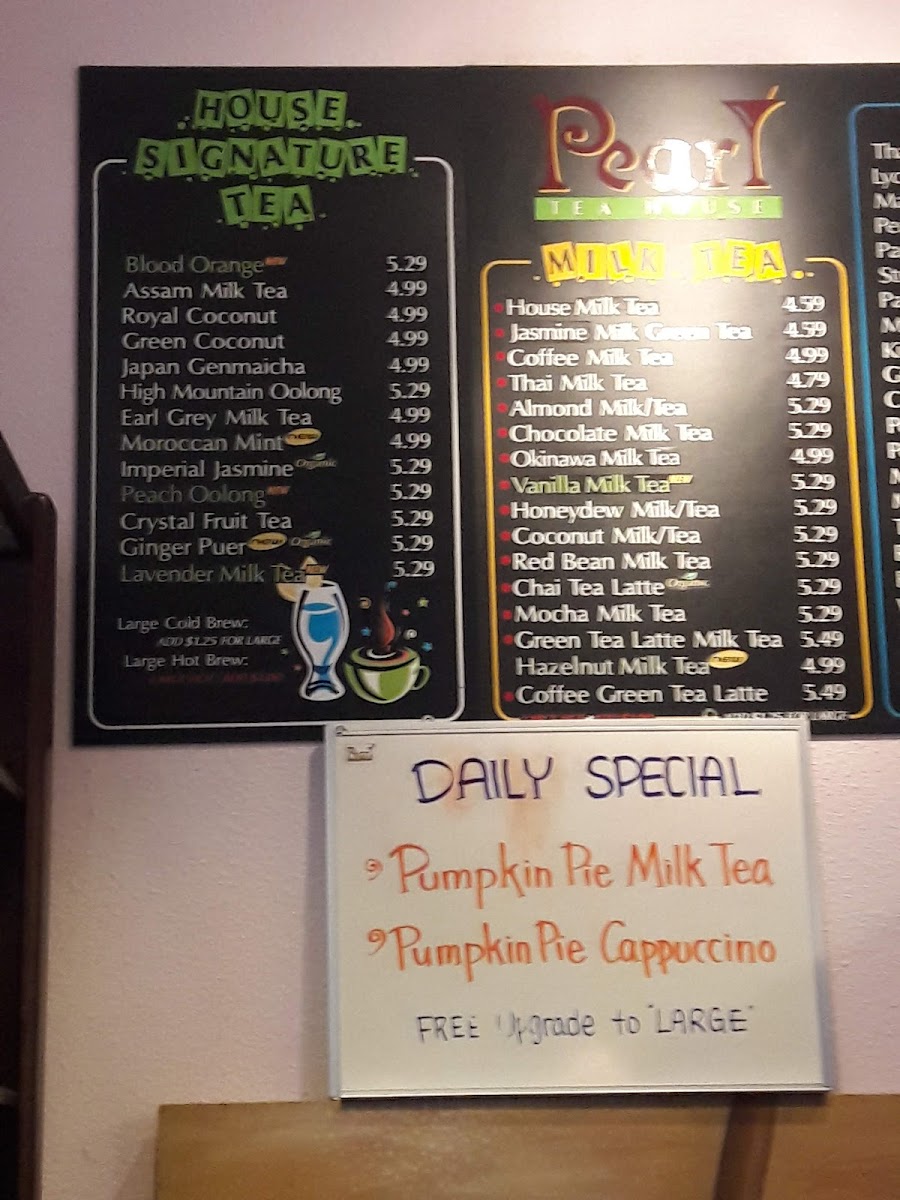 HOUSE
SIGNATURE
TEA
Blood Orange NEW 5.29
Assam Milk Tea 4.99
Royal Coconut 4.99
Green Coconut 4.99
Japan Genmaicha 4.99
High Mountain Oolong 5.29
Earl Grey Milk Tea 4.99
Moroccan Mint 4.99
Imperial Jasmine Organic 5.29
Peach Oolong NEW 5.29
Crystal Fruit Tea 5.29
Ginger Puer Organic 5.29
Lavender Milk Tea 5.29
Large Cold Brew:
ADD $1.25 FOR LARGE
Large Hot Brew:
Pearl
TEA HOUSE
MILK TEA
House Milk Tea 4.59
Jasmine Milk Green Tea 4.59
Coffee Milk Tea 4.99
Thai Milk Tea 4.79
Almond Milk/Tea 5.29
Chocolate Milk Tea 5.29
Okinawa Milk Tea 4.99
Vanilla Milk Tea NEW 5.29
Honeydew Milk/Tea 5.29
Coconut Milk/Tea 5.29
Red Bean Milk Tea 5.29
Chai Tea Latte Organic 5.29
Mocha Milk Tea 5.29
Green Tea Latte Milk Tea 5.49
Hazelnut Milk Tea 4.99
Coffee Green Tea Latte 5.49
DAILY SPECIAL
Pumpkin Pie Milk Tea
Pumpkin Pie Cappuccino
FREE Upgrade to "LARGE"